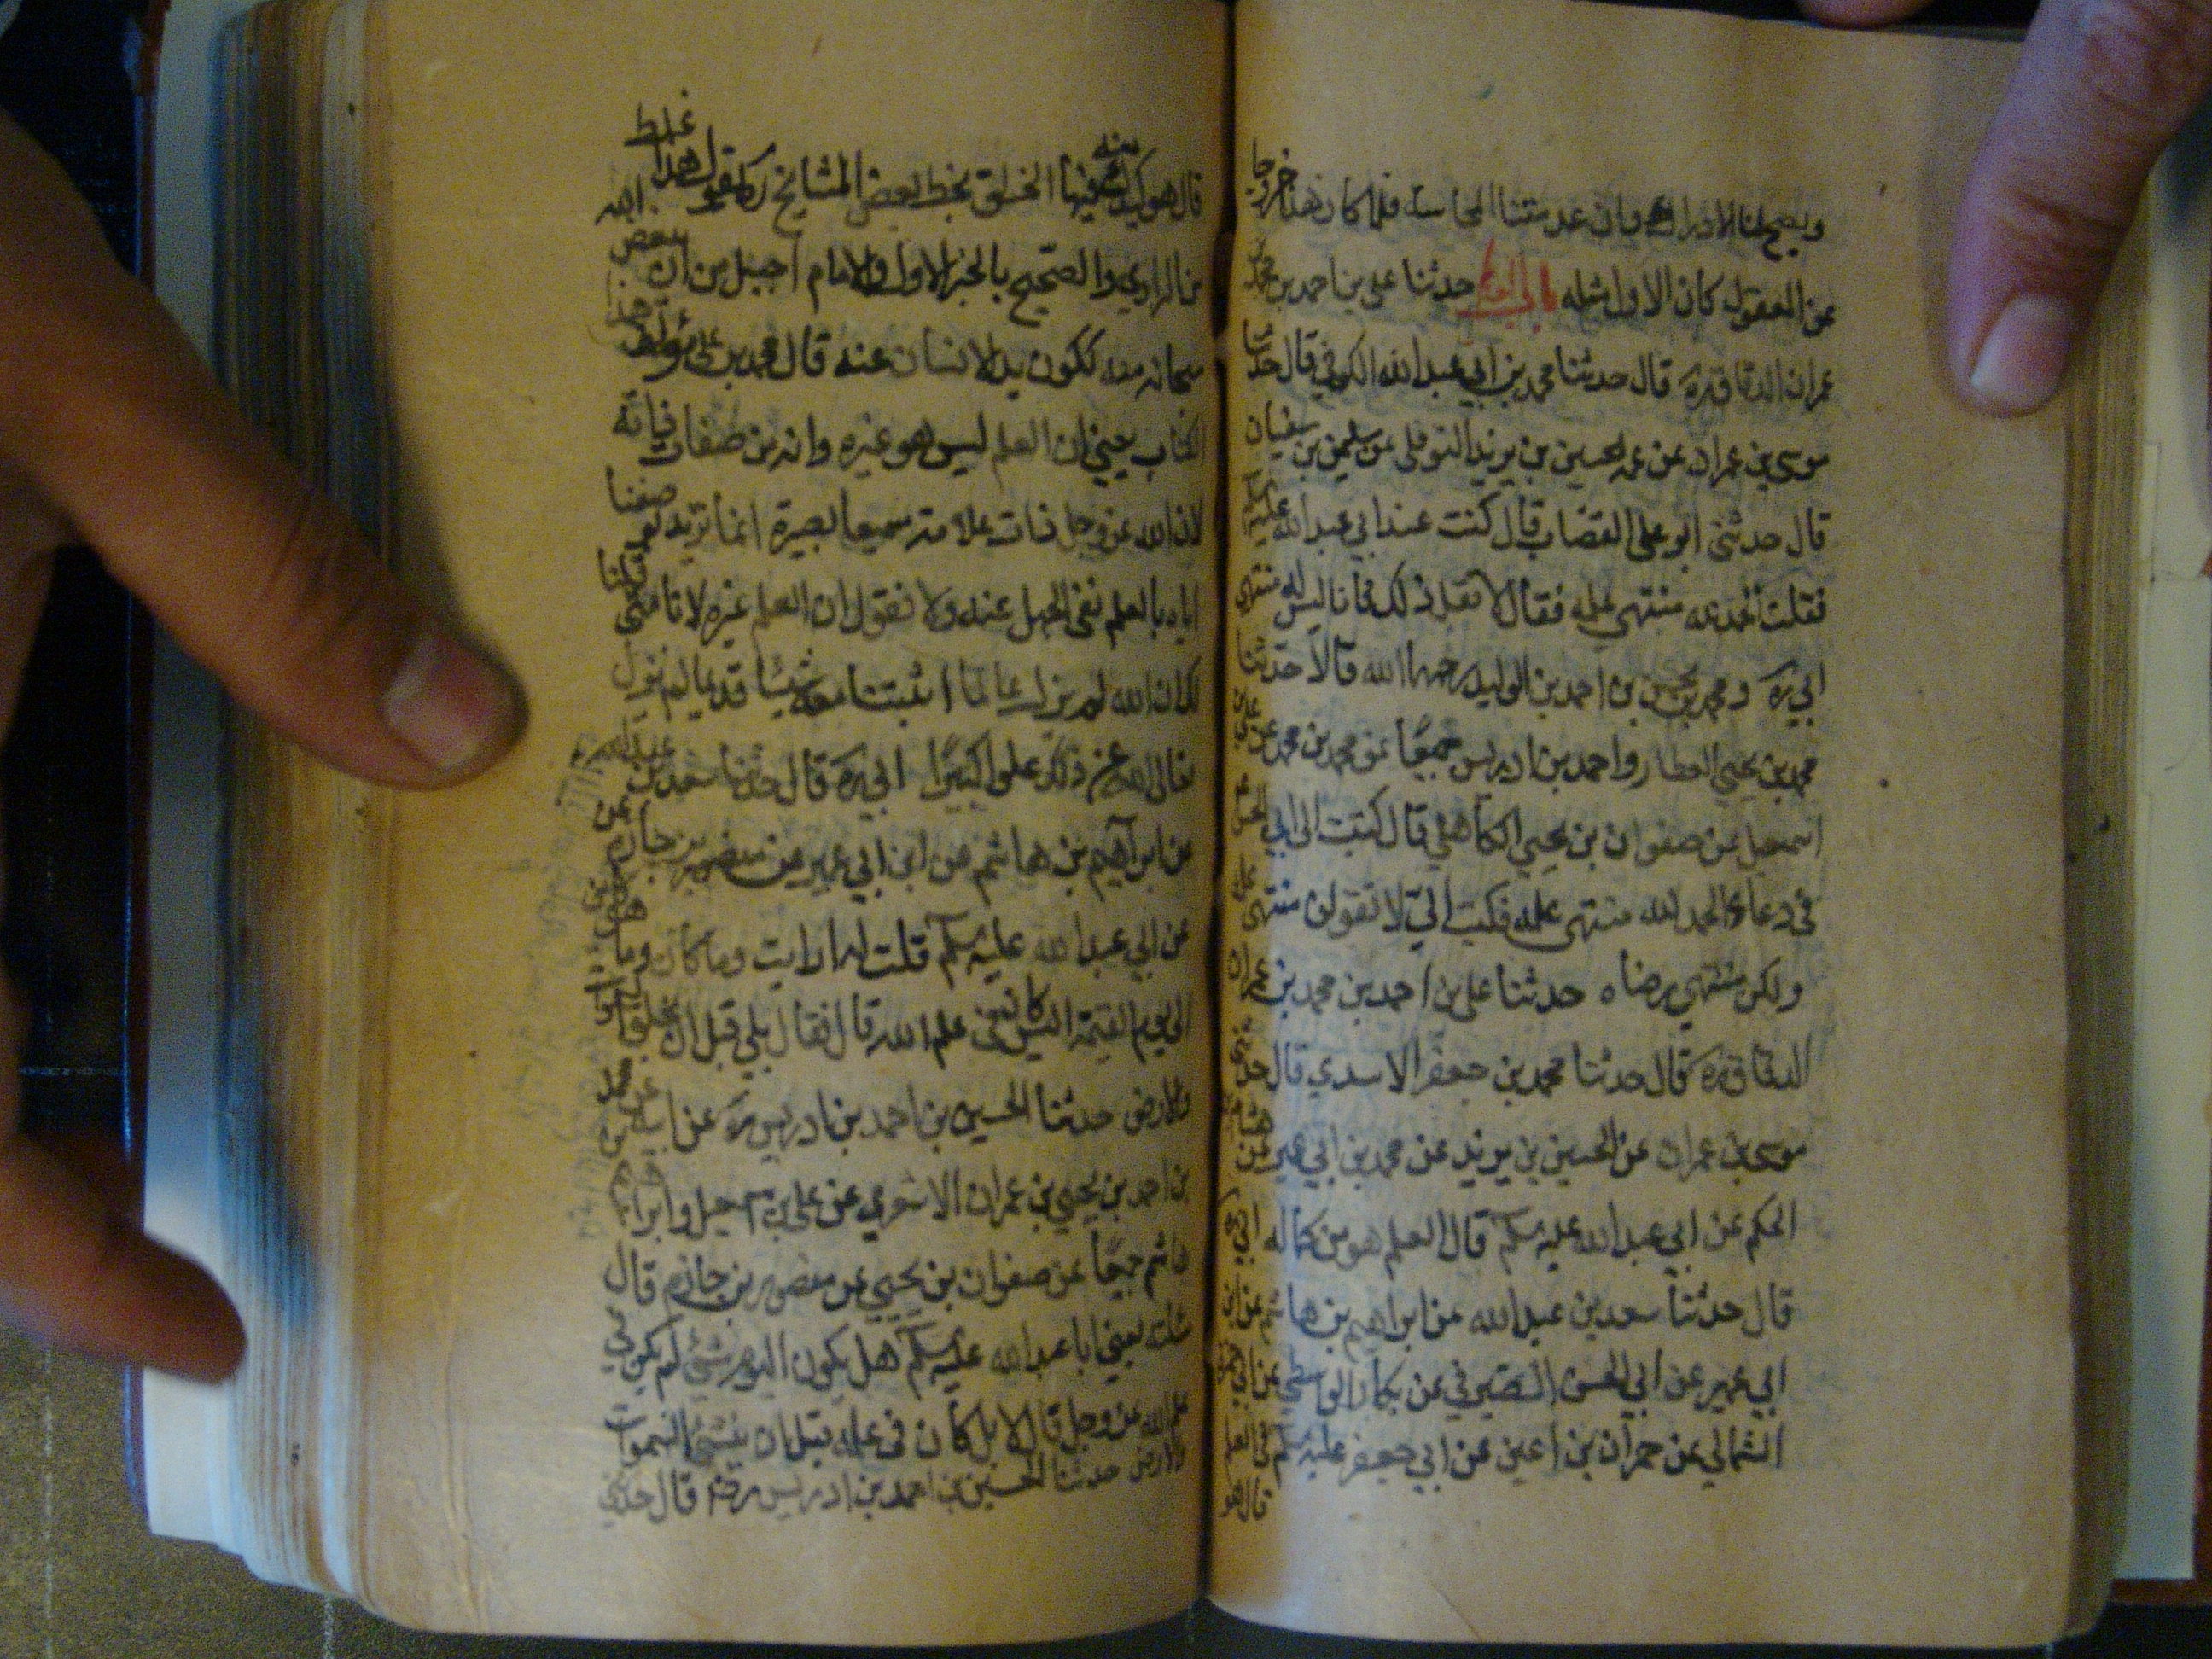 ويصح لنا الادراك وان عدمتنا الحاسة فلما كان هذا خروجا
عن المعقول كان الاول مثله باب العلم حدثنا علي بن احمد بن محمد بن
عمران الدقاق ره قال حدثنا محمد بن ابي عبد الله الكوفي قال حدثنا
موسى بن عمران عن عمه الحسين بن يزيد النوفلي عن سليمن بن سفيان
قال حدثني ابو علي القصاب قال كنت عند ابي عبد الله عليه السلم
فقلت الحمد لله منتهى علمه فقال لا تقل ذلك فانه ليس لعلمه منتهى
ابي ره ومحمد بن الحسن بن احمد بن الوليد رحمهما الله قالا حدثنا
محمد بن يحيى العطار واحمد بن ادريس جميعا عن محمد بن احمد عن علي بن
اسمعيل عن صفوان بن يحيى الكاهلي قال كتبت الى ابي الحسن ع
في دعاء الحمد لله منتهى علمه فكتب الي لا تقولن منتهى علمه
ولكن منتهى رضاه حدثنا علي بن احمد بن محمد بن عمران
الدقاق ره قال حدثنا محمد بن جعفر الاسدي قال حدثني
موسى بن عمران عن الحسين بن يزيد عن محمد بن ابي عمير عن هشام بن
الحكم عن ابي عبد الله عليه السلم قال العلم هو من كماله ابي ره
قال حدثنا سعد بن عبد الله عن ابراهيم بن هاشم عن ابن
ابي عمير عن ابي الحسن الصيرفي عن بكار الواسطي عن ابي حمزة
الثمالي عن حمران بن اعين عن ابي جعفر عليه السلم في العلم
قال هو
قال هو كيدك منه فيها الخلق بخط بعض المشايخ ره قوله هذا غلط
من الراوي والصحيح بالخبر الاول والامام اجل من ان يبعض الله
سبحانه منه ككون يد الانسان عنه قال محمد بن علي مؤلف هذا
الكتاب يعني ان العلم ليس هو غيره وانه من صفات ذاته
لان الله عز وجل ذات علامة سميعا بصيرة انما نريد بوصفنا
اياه بالعلم نفي الجهل عنه ولا نقول ان العلم غيره لانا متى قلنا
ذلك ان الله لم يزل عالما اثبتنا معه شيئا قديما لم يزل
تعالى الله عن ذلك علوا كبيرا ابي ره قال حدثنا سعد بن عبد الله
عن ابراهيم بن هاشم عن ابن ابي عمير عن منصور بن حازم
عن ابي عبد الله عليه السلم قلت له ارايت وما كان وما هو كائن
الى يوم القيمة اليس كان في علم الله قال فقال بلى قبل ان يخلق السموات
والارض حدثنا الحسين بن احمد بن ادريس ره عن ابيه عن محمد
بن احمد بن يحيى بن عمران الاشعري عن علي بن اسمعيل وابراهيم بن
هاشم جميعا عن صفوان بن يحيى عن منصور بن حازم قال
سئلته يعني ابا عبد الله عليه السلم هل يكون اليوم شيئ لم يكن في
علم الله عز وجل قال لا بل كان في علمه قبل ان ينشئ السموات
والارض حدثنا الحسين بن احمد بن ادريس رضه قال حدثني